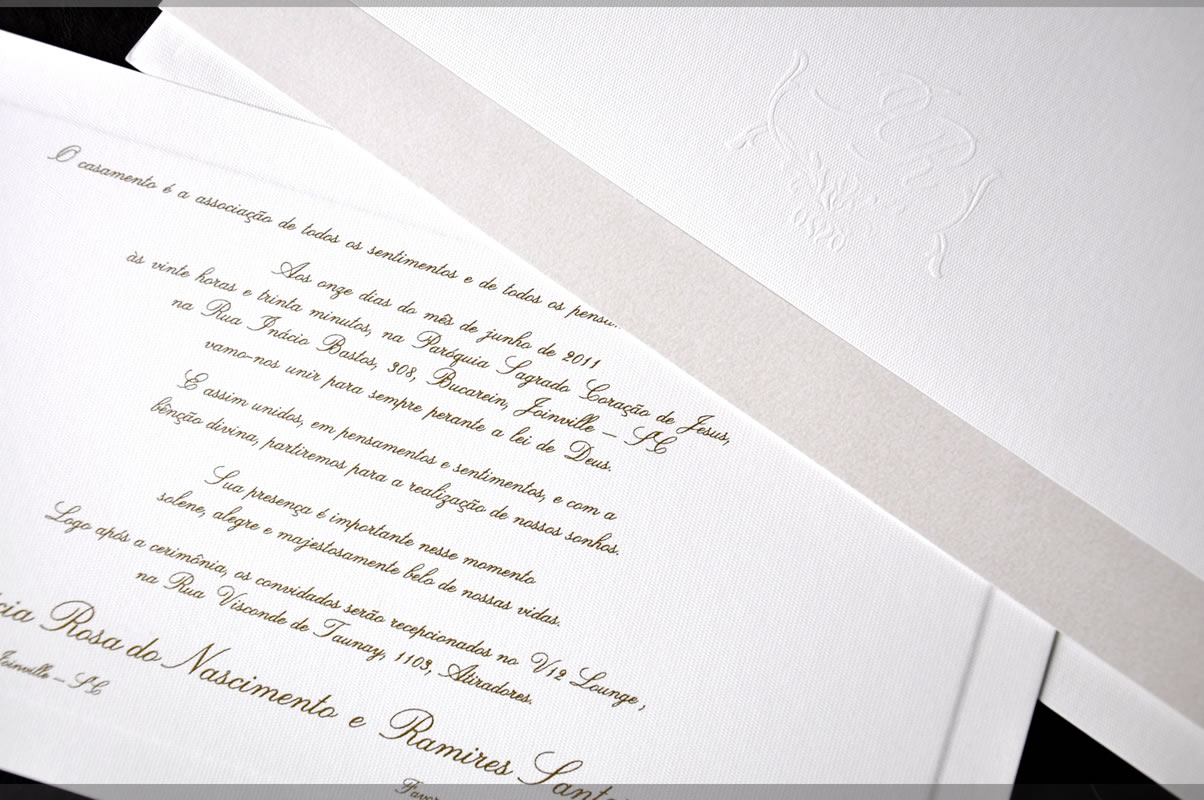 O casamento é a associação de todos os sentimentos e de todos os
Aos onze dias do mês de junho de 2011
às vinte horas e trinta minutos, na Paróquia Sagrado Coração de Jesus,
na Rua Inácio Bastos, 308, Bucarein, Joinville – SC
vamo-nos unir para sempre perante a lei de Deus.
E assim unidos, em pensamentos e sentimentos, e com a
bênção divina, partiremos para a realização de nossos sonhos.
Sua presença é importante nesse momento
solene, alegre e majestosamente belo de nossas vidas.
Logo após a cerimônia, os convidados serão recepcionados no V12 Lounge,
na Rua Visconde de Taunay, 1103, Atiradores.
Rosa do Nascimento e Ramires
Joinville – SC